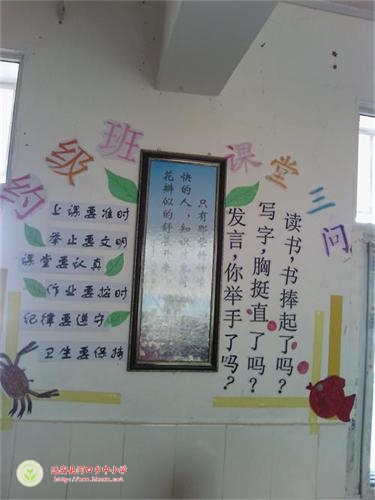 约级班
上课要准时
举止要文明
课堂要认真
作业要按时
纪律要遵守
卫生要保持
只有那些
快的人，知识
花瓣似的舒展开来
课堂三问
读书，书捧起了吗？
写字，胸挺直了吗？
发言，你举手了吗？